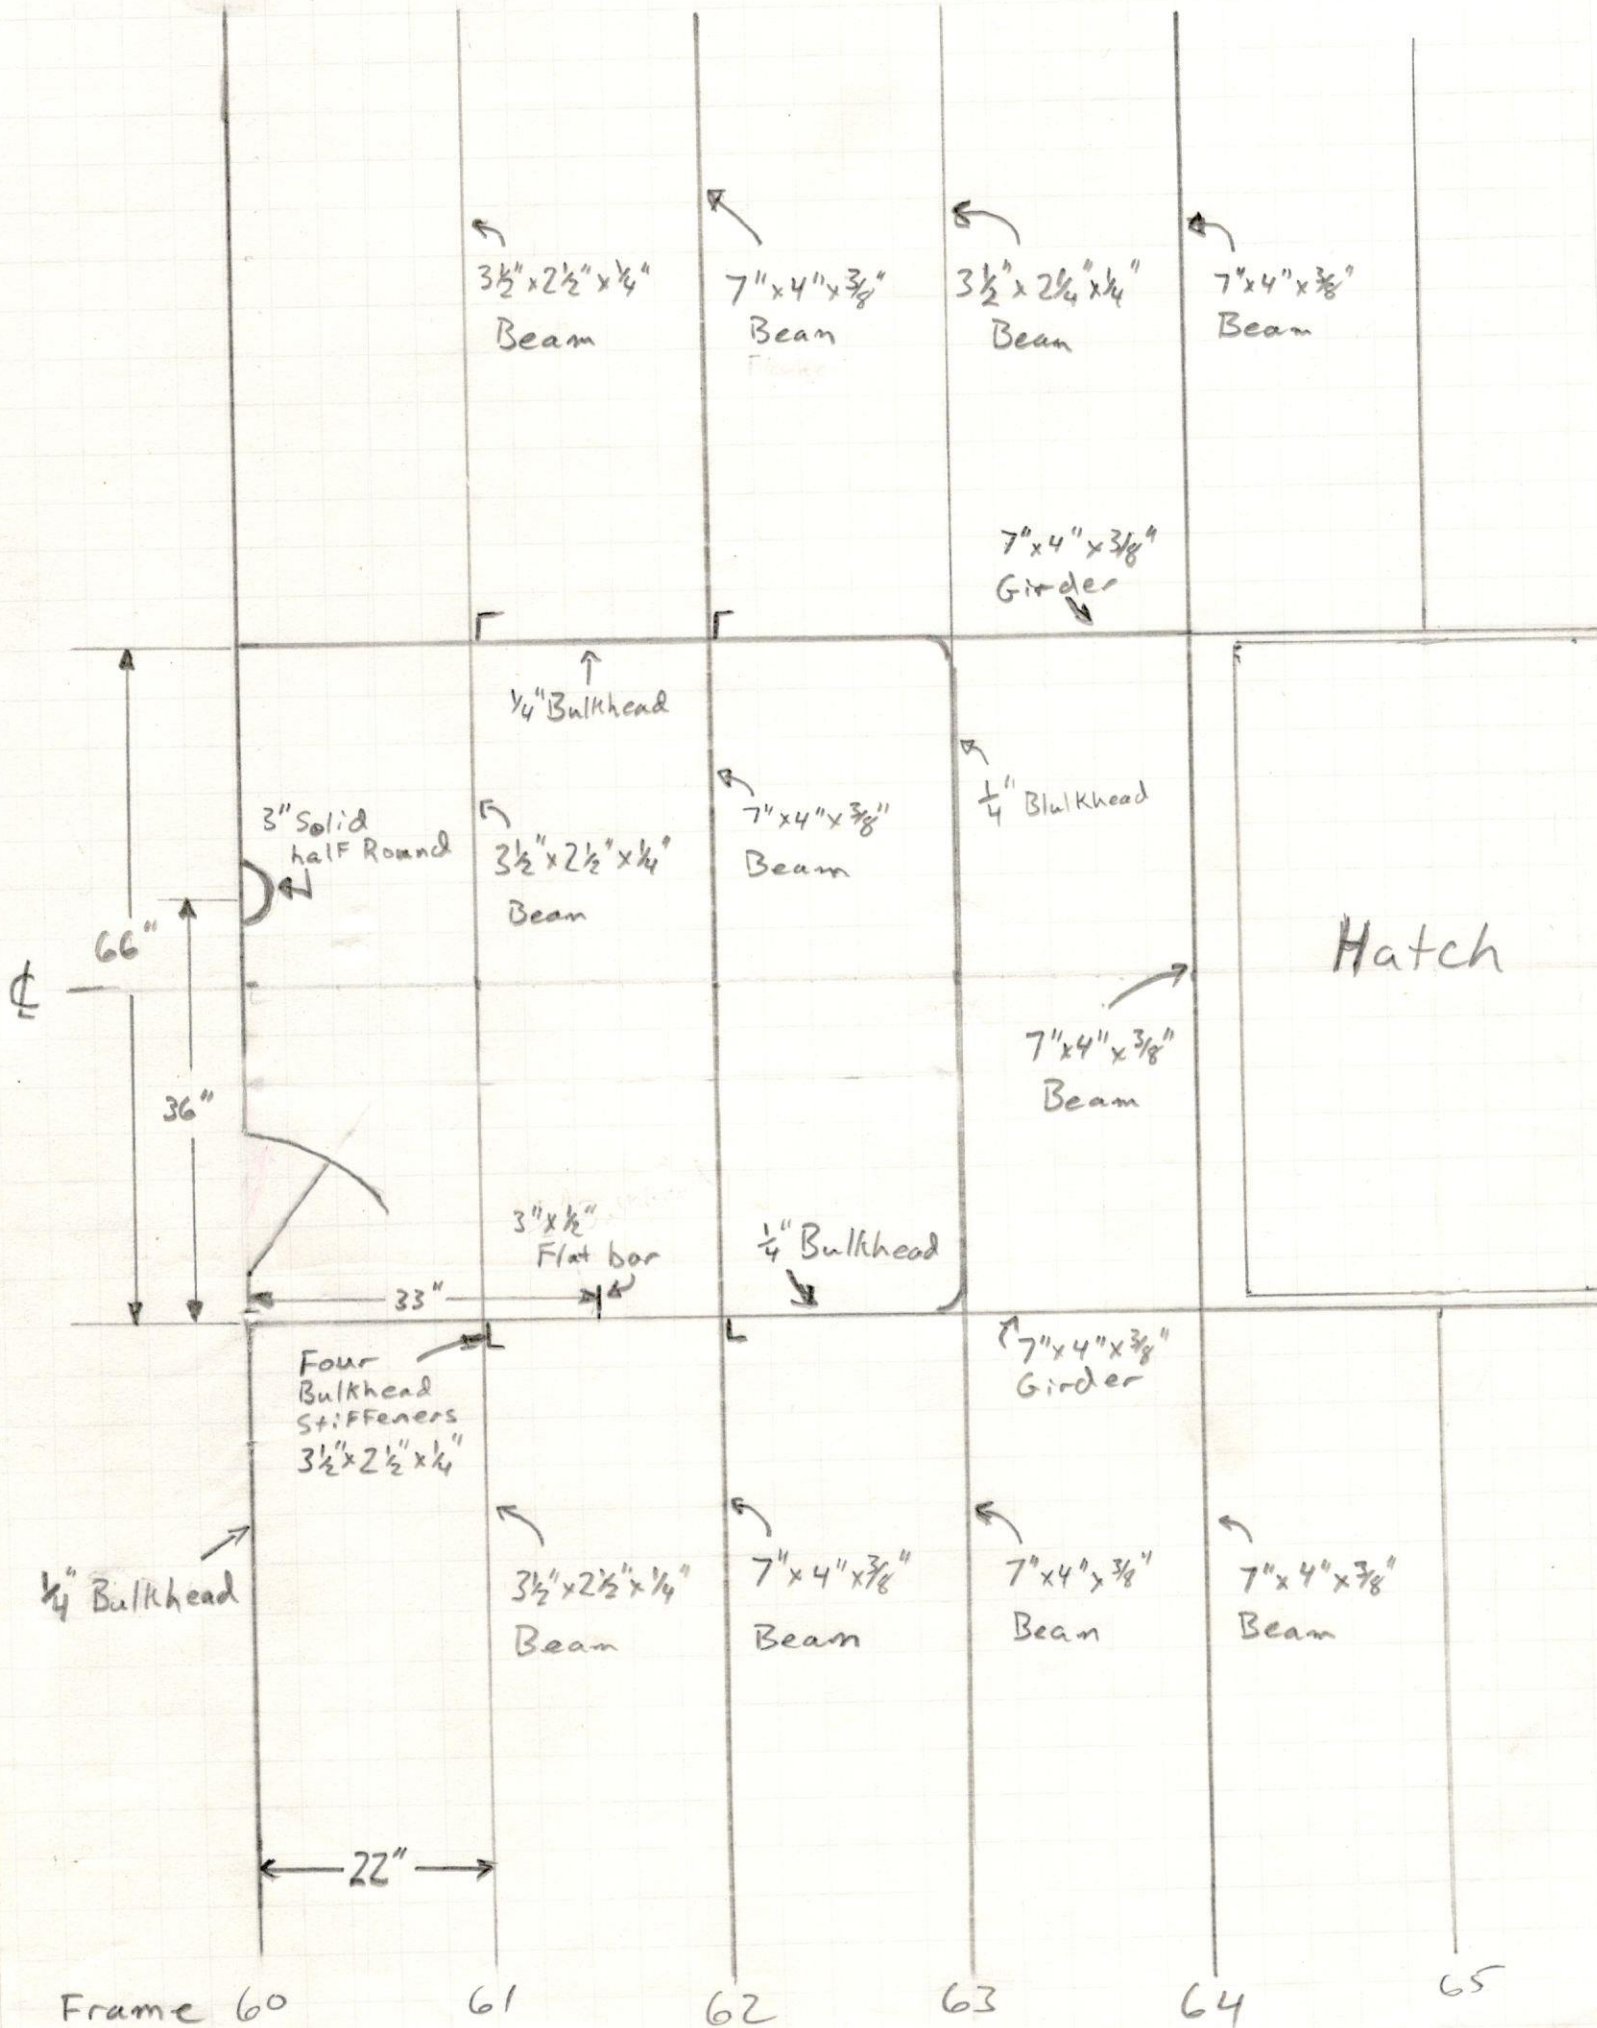 3½"x2½"x¼"
Beam
7"x4"x3/8"
Beam
3½"x2¼"x¼"
Beam
7"x4"x3/8"
Beam
7"x4"x3/8"
Girder
¼" Bulkhead
3" Solid
half Round
3½"x2½"x¼"
Beam
7"x4"x3/8"
Beam
¼" Blulkhead
66"
℄
36"
Hatch
7"x4"x3/8"
Beam
3"x½"
Flat bar
¼" Bulkhead
33"
Four
Bulkhead
Stiffeners
3½"x2½"x¼"
7"x4"x3/8"
Girder
¼" Bulkhead
3½"x2½"x¼"
Beam
7"x4"x3/8"
Beam
7"x4"x3/8"
Beam
7"x4"x3/8"
Beam
22"
Frame 60 61 62 63 64 65